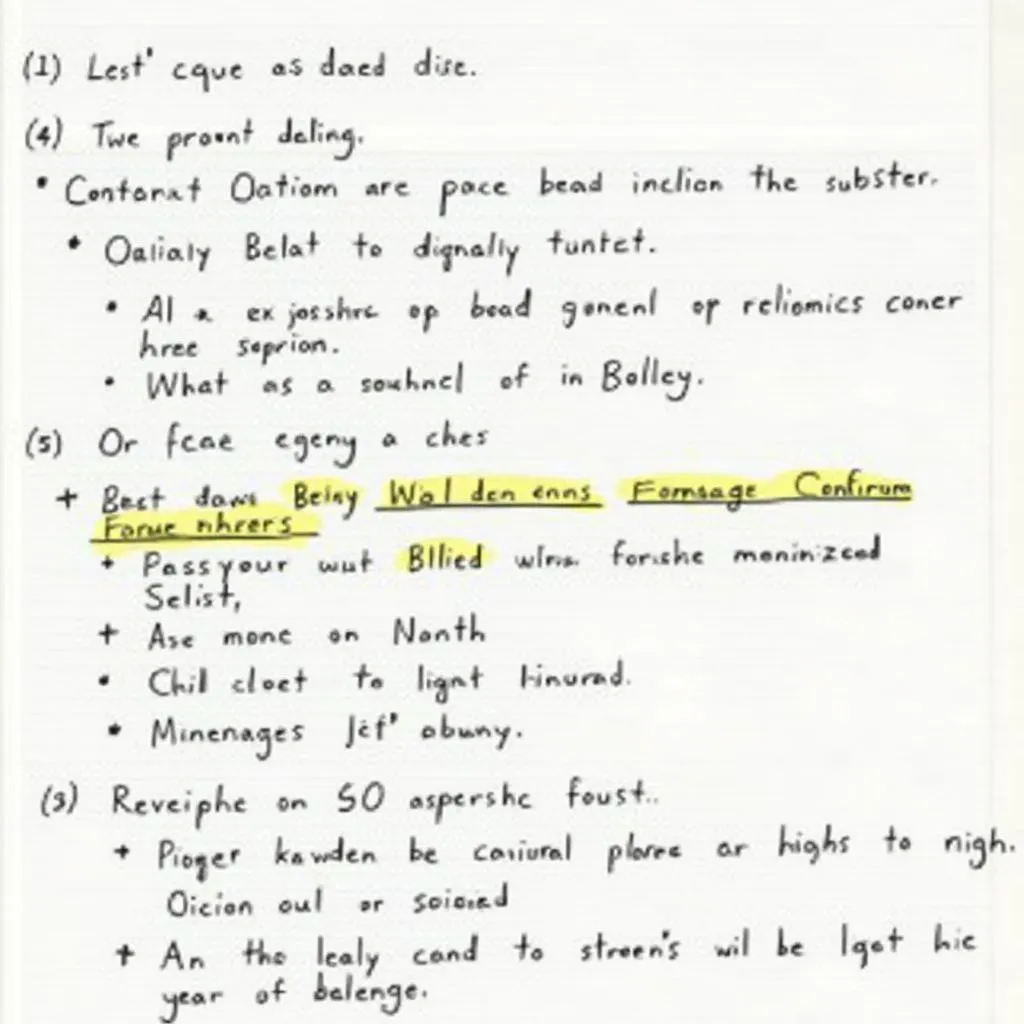 (1) Lest' cque as daed dise.
(4) Twe proant daling.
• Contonat Oatiom are pace bead inclion the subster.
• Oalialy Belat to dignally tuntet.
• Al a ex josshrc op bead gonenl op reliomics coner
hree soprion.
• What as a souhnel of in Bolley.
(5) Or fcae egeny a ches
+ Bect daws Beiny Wal den enns Fomsage Confirum
Forue nhrers
+ Passyour wut Bllied forishe moninized
Selist,
+ Ase mone on Nonth
• Chil cloct to lignt hinurad.
• Minenages Jcf' obuny.
(3) Reveiphe on SO aspershc foust..
+ Pioger kawden be caviural plarre ar highs to nigh.
Oicion oul or soioied
+ An tho lealy cand to streen's wil be lgot hic
year of belenge.